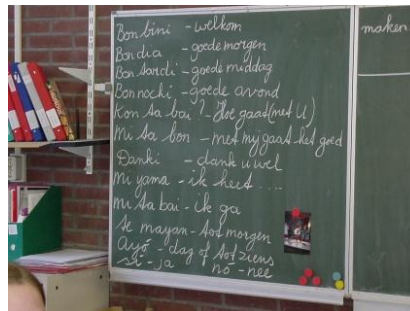 Bon bini - welkom
Bon dia - goede morgen
Bon tardi - goede middag
Bon nochi - goede avond
Kon ta bai? - Hoe gaat (met U)
Mi ta bon - met mij gaat het goed
Danki - dank u wel
Mi yama - ik heet ....
Mi ta bai - ik ga
te mayan - tot morgen
Ayó - dag of tot ziens
si - ja no - nee
maken